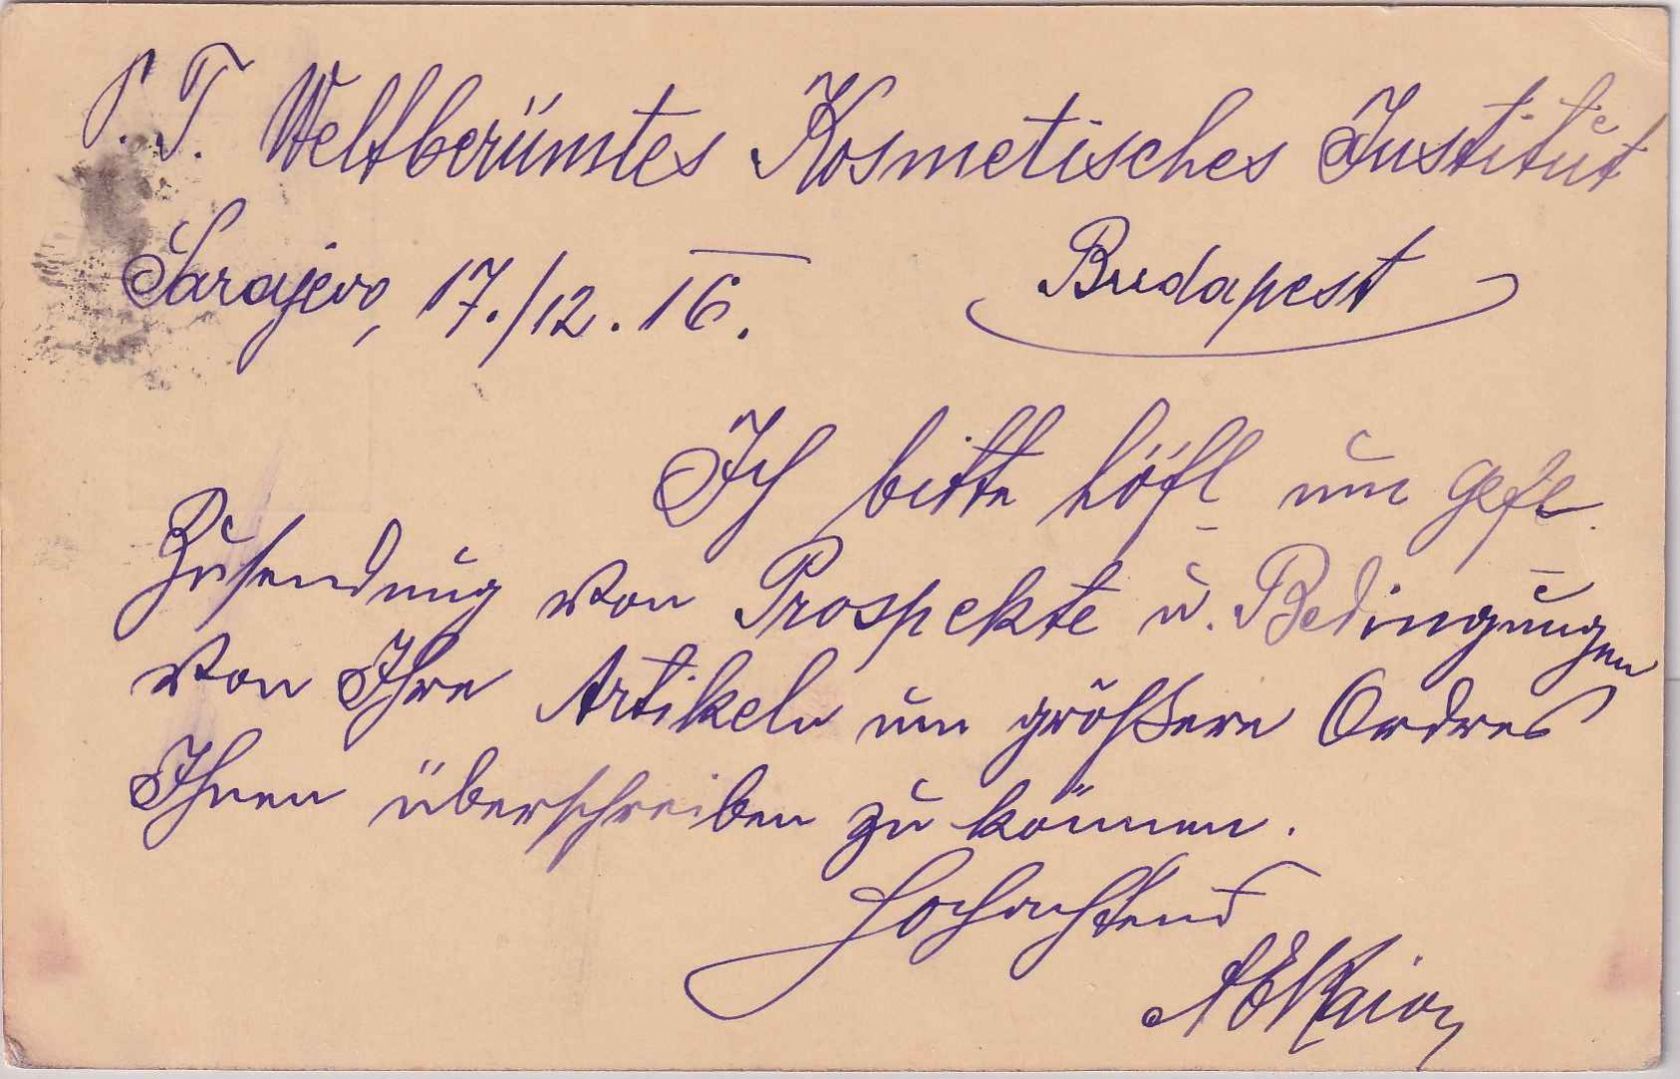 P. T. Weltberümtes Kosmetisches Institut
Sarajevo, 17./12. 16. Budapest
Ich bitte höfl um gefl.
Zusendung von Prospekte u. Bedingungen
von Ihre Artikeln um größere Ordres
Ihnen überschreiben zu können.
Hochachtend